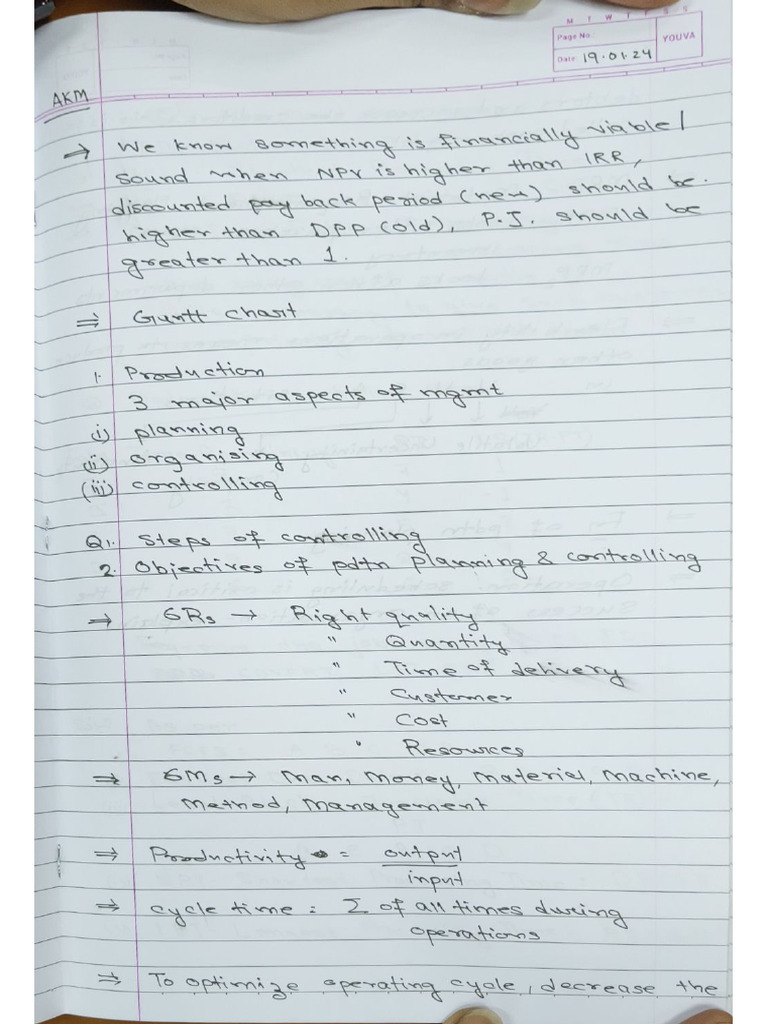 M T W T F S S
Page No.
YOUVA
Date: 19.01.24
AKM
→ We know something is financially viable/
sound when NPV is higher than IRR,
discounted pay back period (new) should be
higher than DPP (old), P.I. should be
greater than 1.
⇒ Gantt chart
1. Production
3 major aspects of mgmt
(i) planning
(ii) organising
(iii) controlling
Q1. Steps of controlling
2. Objectives of pdtn planning & controlling
⇒ 6Rs → Right quality
" Quantity
" Time of delivery
" Custermer
" Cost
" Resources
⇒ 6Ms → Man, Money, Material, Machine,
Method, Management
⇒ Productivity = output
input
⇒ cycle time = Σ of all times during
operations
⇒ To optimize operating cycle, decrease the